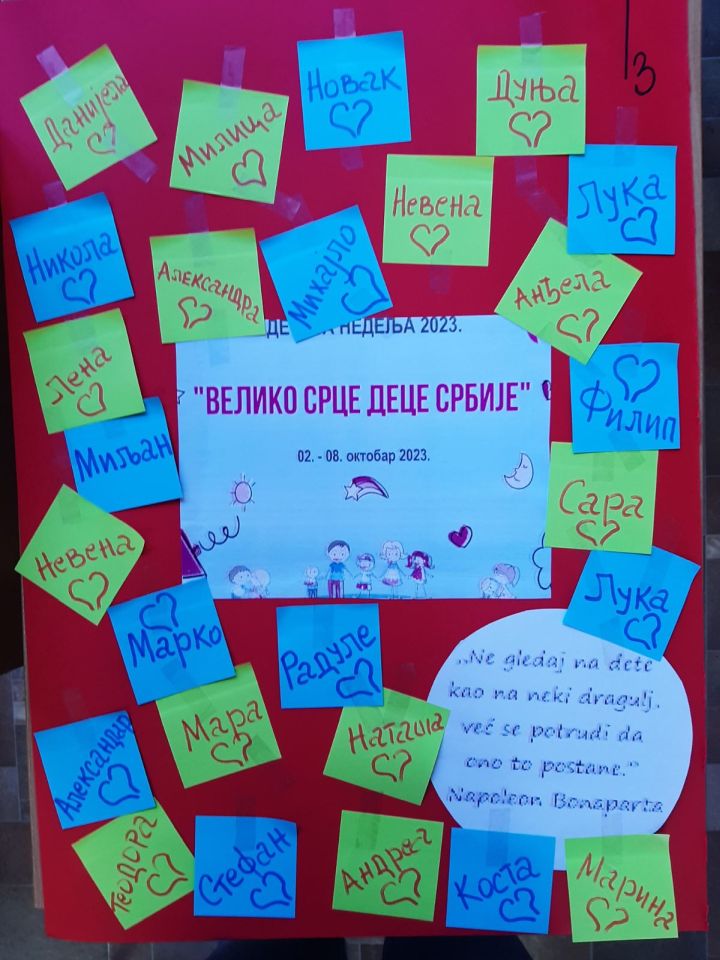 I3
Данијела
Милица
Новак
Дуња
Невена
Лука
Никола
Александра
Михајло
Анђела
НЕДЕЉА 2023.
"ВЕЛИКО СРЦЕ ДЕЦЕ СРБИЈЕ"
02. - 08. октобар 2023.
Лена
Филип
Миљан
Сара
Невена
Лука
Марко
Радуле
„Ne gledaj na dete
kao na neki dragulj,
već se potrudi da
ono to postane.“
Napoleon Bonaparta
Мара
Наташа
Александар
Теодора
Стефан
Андреа
Коста
Марина